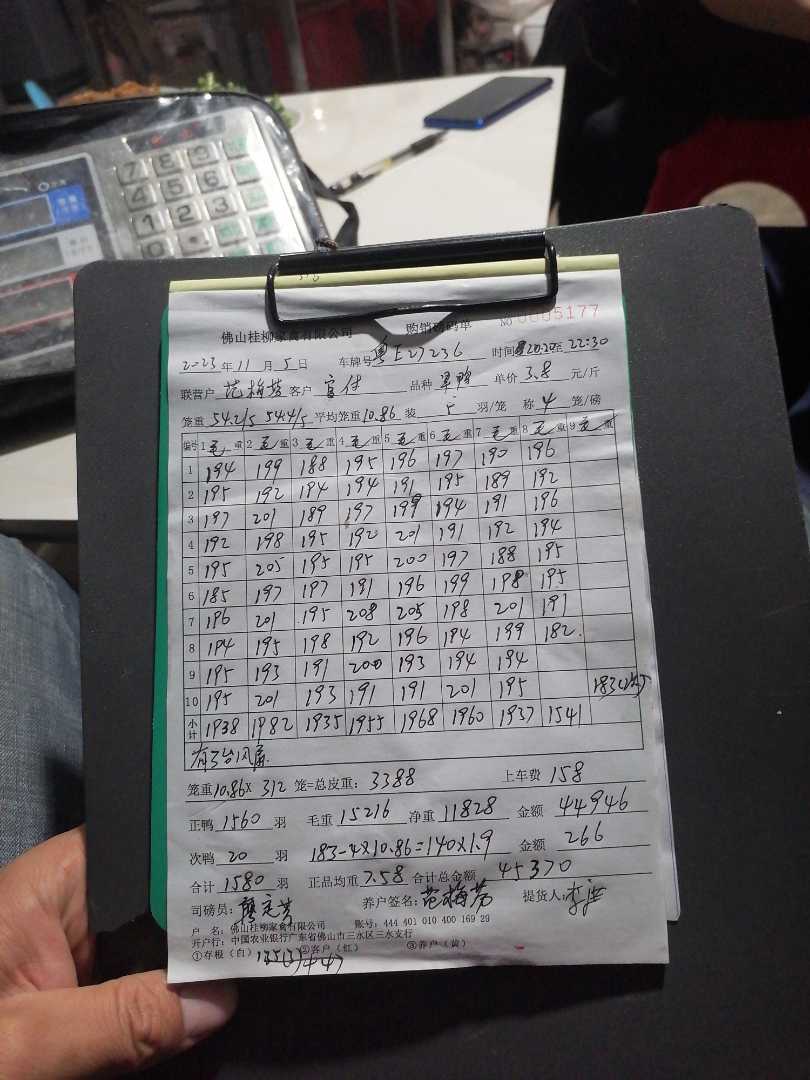 佛山桂柳家禽有限公司 购销磅码单 No 0005177
2023年11月5日 车牌号粤E27236 时间20:20至22:30
联营户范梅芳客户 官付 品种 单价3.8元/斤
笼重 54.2/5 54.4/5 平均笼重10.86 装5羽/笼 称4笼/磅
编号 1毛重 2毛重 3毛重 4毛重 5毛重 6毛重 7毛重 8毛重 9毛重
1 194 199 188 195 196 197 190 196
2 195 192 194 194 191 195 189 192
3 197 201 189 197 199 194 191 196
4 192 198 195 190 201 191 192 194
5 195 205 195 195 200 197 188 195
6 185 197 197 191 196 199 198 195
7 196 201 195 208 205 198 201 191
8 194 195 198 192 196 194 199 182.
9 195 193 191 200 193 194 194
10 195 201 193 191 191 201 195 183(次)
小计 1938 1982 1935 1955 1968 1960 1937 1541
笼重10.86× 312 笼=总皮重: 3388 上车费 158
正鸭 1560 羽 毛重 15216 净重 11828 金额 44946
次鸭 20 羽 183-4×10.86=140×1.9 金额 266
合计 1580 羽 正品均重 7.58 合计总金额 45370
司磅员: 养户签名: 范梅芳 提货人:
户 名: 佛山桂柳家禽有限公司 账号: 444 401 010 400 169 29
开户行: 中国农业银行广东省佛山市三水区三水支行
①存根(白) ②客户(红) ③养户(黄)
7 8 9
4 5 6
1 2 3
0